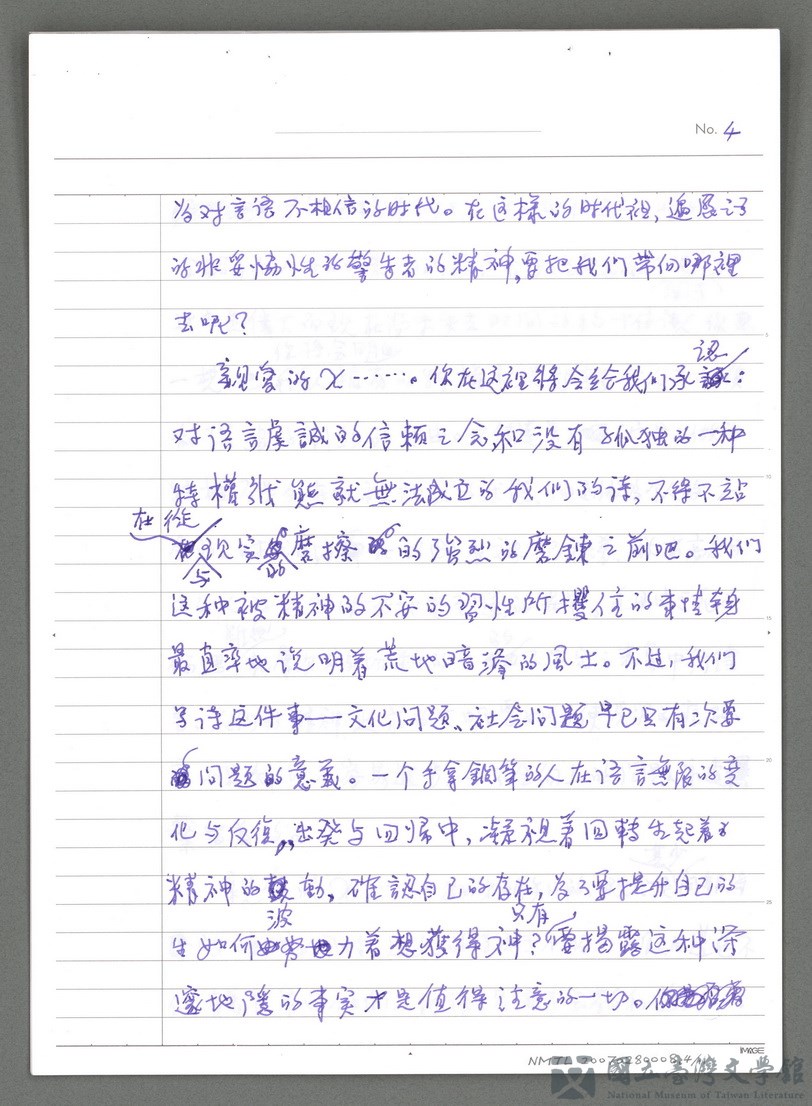 No. 4
为对言语不相信的时代。在这样的时代裡,遍歷詩
的非妥協性的警告者的精神,要把我们带向哪裡
去呢?
認
親爱的X……。你在这裡將会给我们承:
对语言虔誠的信賴之念和没有孤独的一种
特權狀態就無法成立的我们的诗,不得不站
在從
现实磨擦的强烈的磨鍊之前吧。我们
与 的
这种被精神的不安的習性所攫住的事情本身
最直率地说明着荒地暗澹的風土。不过,我们
写诗这件事——文化问题、社会问题早已只有次要
问题的意義。一个手拿鋼筆的人在语言無限的变
化与反復,出發与回归中,凝視着回轉生起着
精神的動,確認自己的存在,为了要提升自己的
波 只有
生如何力着想獲得神?要揭露这种深
邃地隱的事实才是值得注意的一切。
IMAGE
NMTL
國立臺灣文學館
National Museum of Taiwan Literature